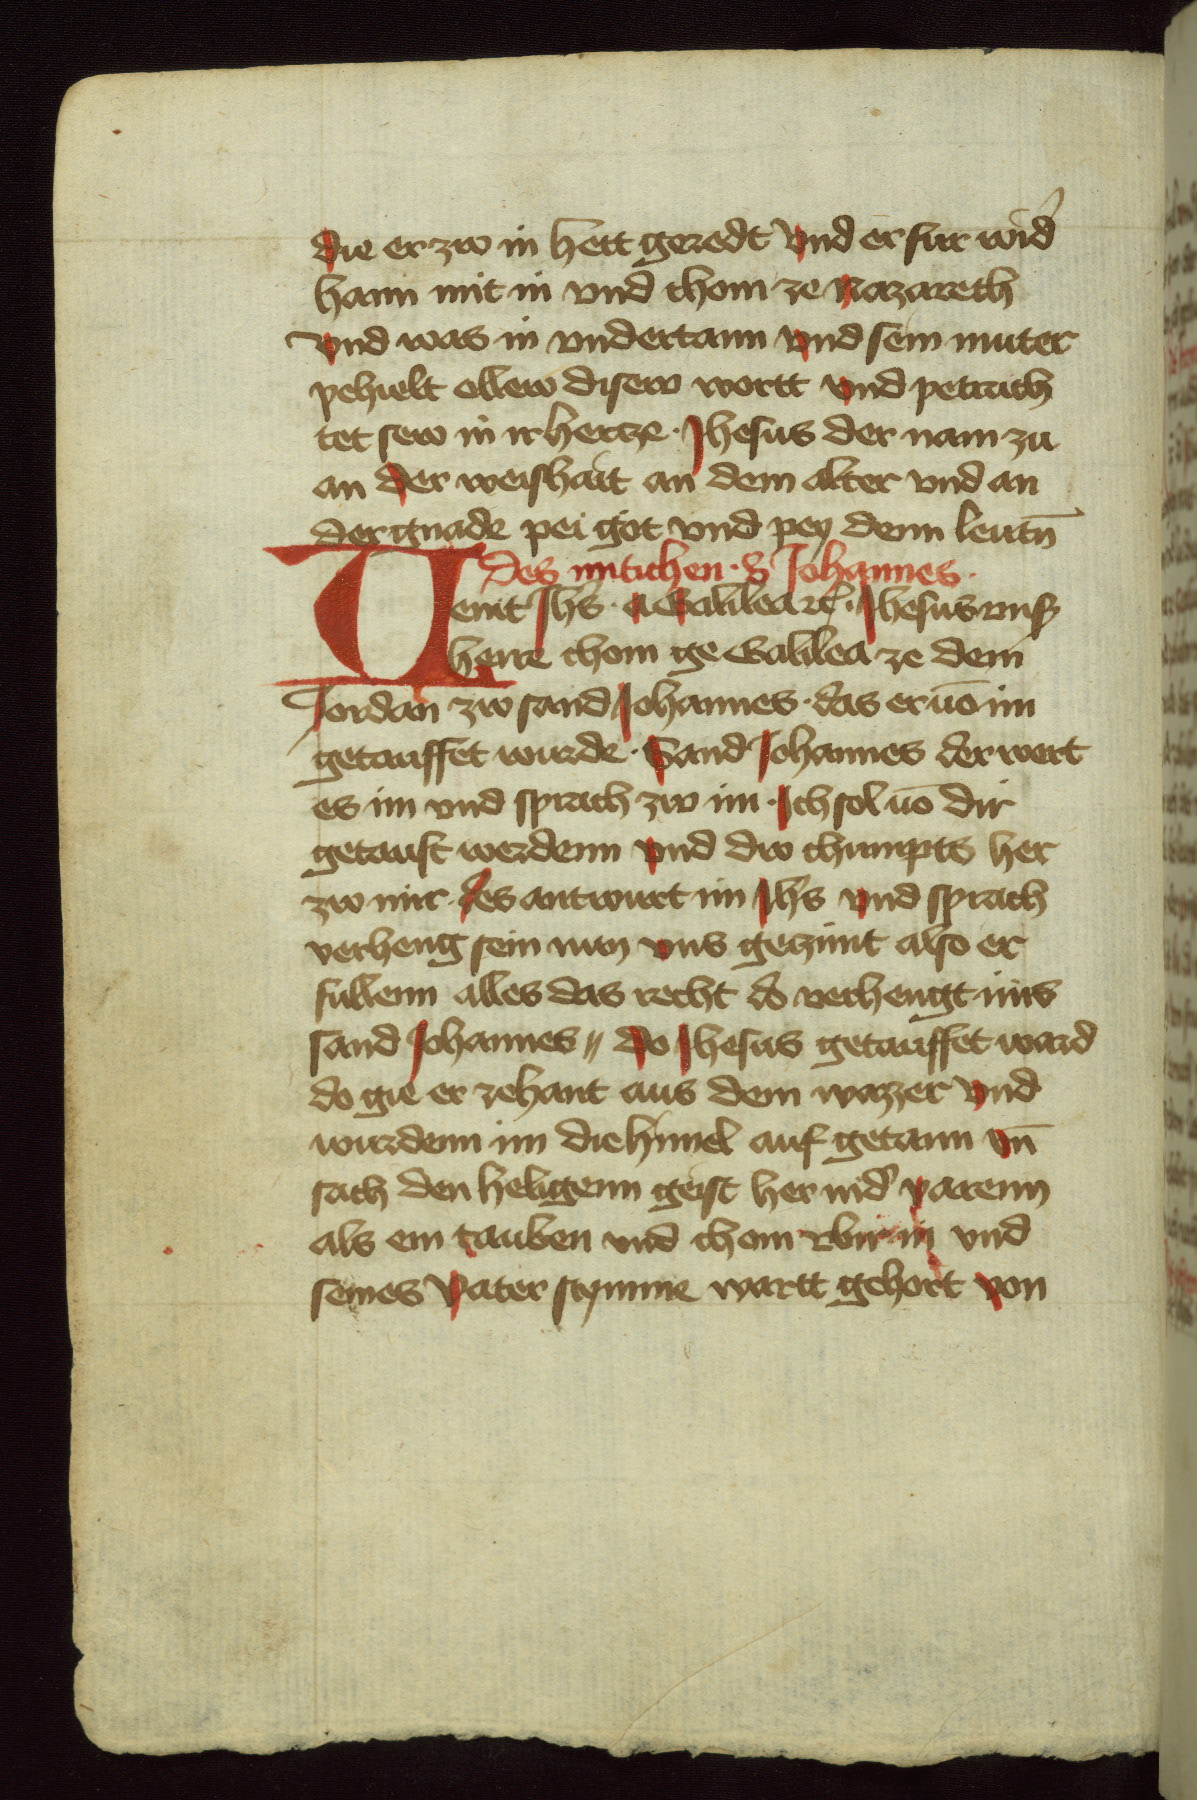 die er zw in hett geredt Vnd er fur wid̄
haim mit in vnd chom ze Nazareth
vnd was in vndertann vnd sein muter
pehielt ellew disew wortt vnd petrach
tet sew in ir hertze · Jhesus der nam zu
an der weishait an dem alter vnd an
der gnade pei got vnd pey denn leutn̄
Des mitichen · S Johannes ·
Venit Jhs̄ · a Galilea rc̄ · Jhesus vnſ
herre chom ge Galilea ze dem
Jordan zw sand Johannes · das er vō im
getauffet wurde · Sand Johannes der wert
es im vnd sprach zw im · Ich sol vō dir
getauft werdenn vnd dw chumpts her
zw mir · des antwurt im Jhs̄ vnd sprach
verheng sein nun vns getzimt also er
fullenn alles das recht do verhengt ims
sand Johannes // do Jhesus getauffet ward
do gie er zehant aus dem wazzer vnd
wurdenn im die himel auf getann vn̄
sach den heligenn geist her nid̄ varenn
als ein tauben vnd chom vbir in vnd
seines Vater stymme wartt gehort von